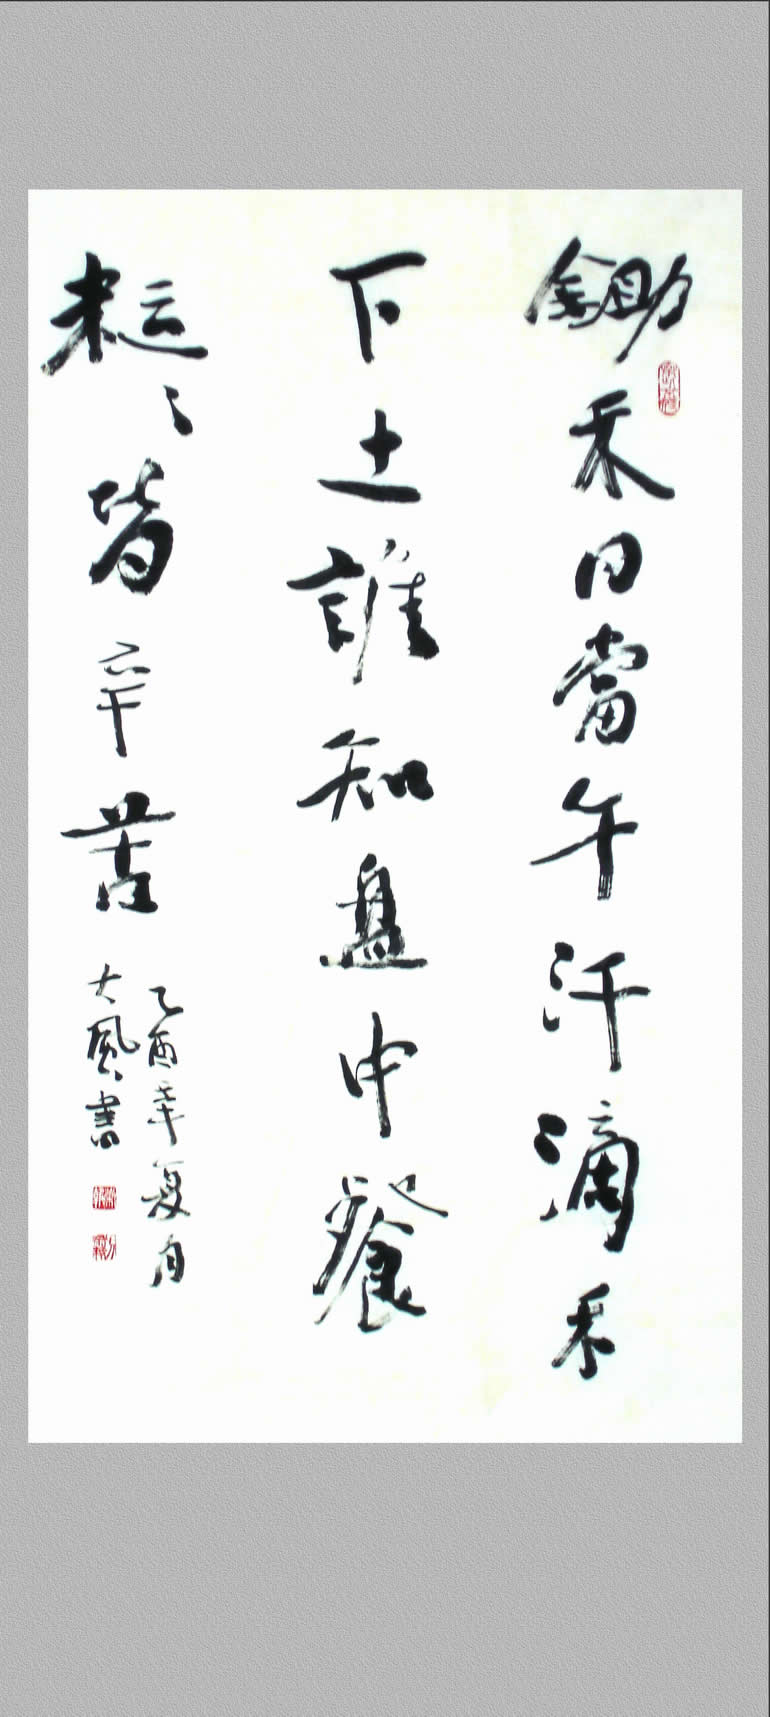 鋤禾日當午汗滴禾
下土誰知盘中餐
粒々皆辛苦
乙酉年夏月
大風書